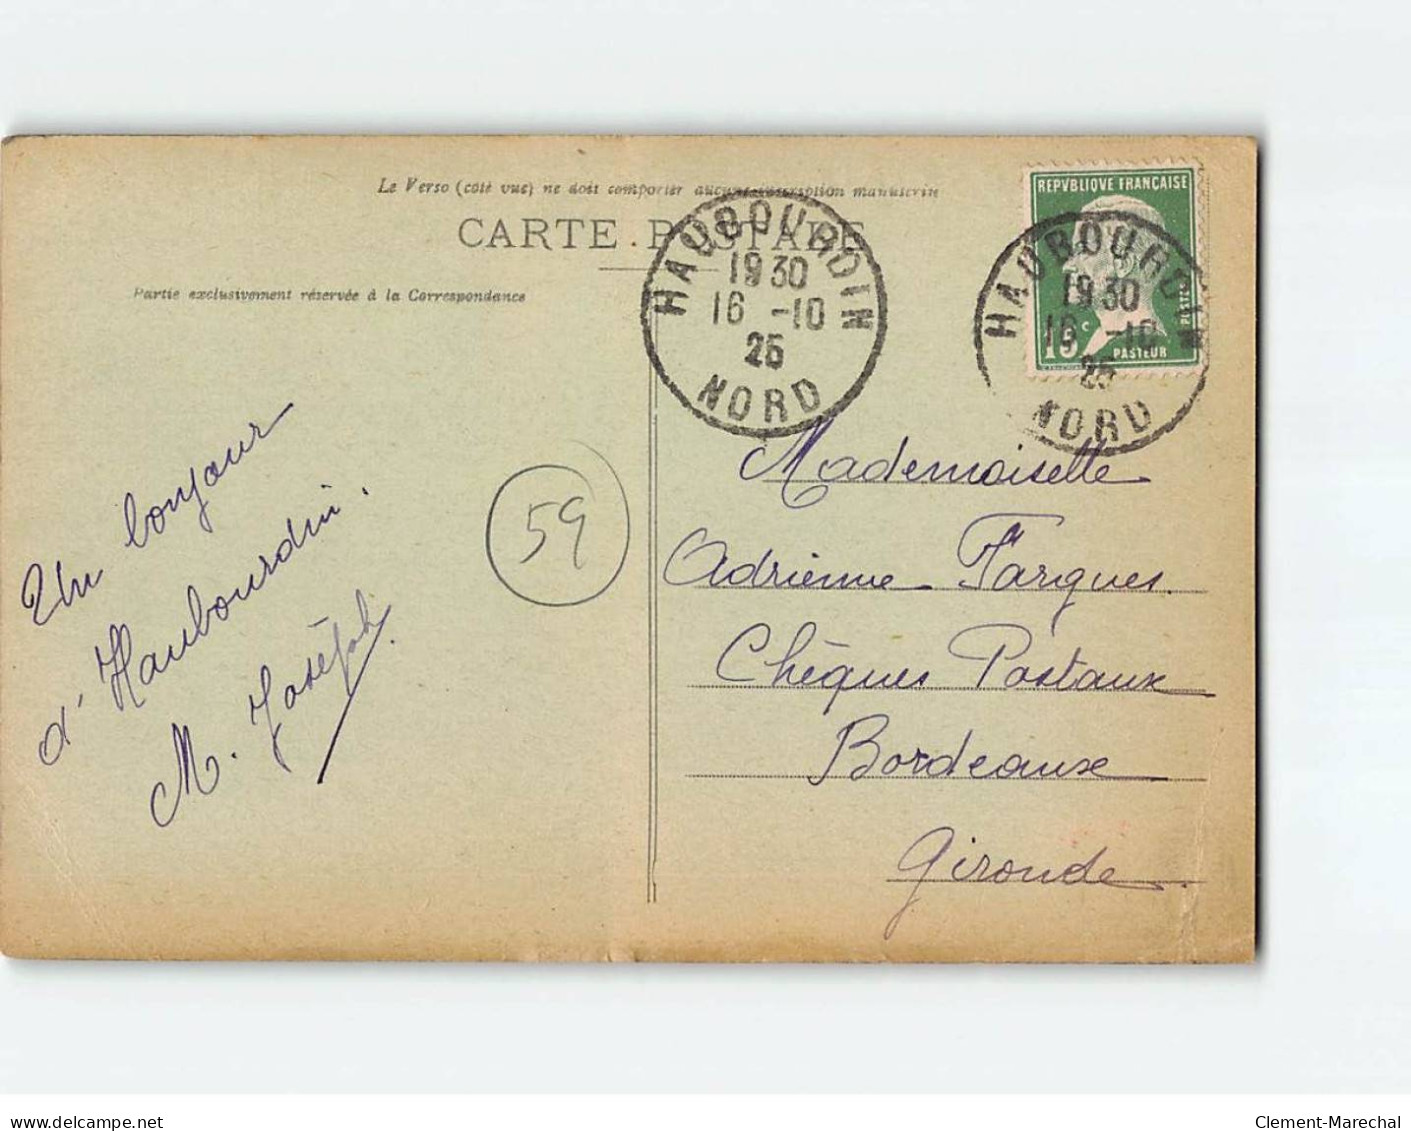 Le Verso (côté vue) ne doit comporter aucune inscription manuscrite
CARTE POSTALE
Partie exclusivement réservée à la Correspondance
HAUBOURDIN
1930
16 -10
25
NORD
REPVBLIQUE FRANÇAISE
POSTES
15c
PASTEUR
HAUBOURDIN
1930
16 -10
25
NORD
Un bonjour
d'Haubourdin.
M. Joséph
59
Mademoiselle
Adrienne Fargues
Chèques Postaux
Bordeaux
Gironde
delcampe.net
Clement-Marechal